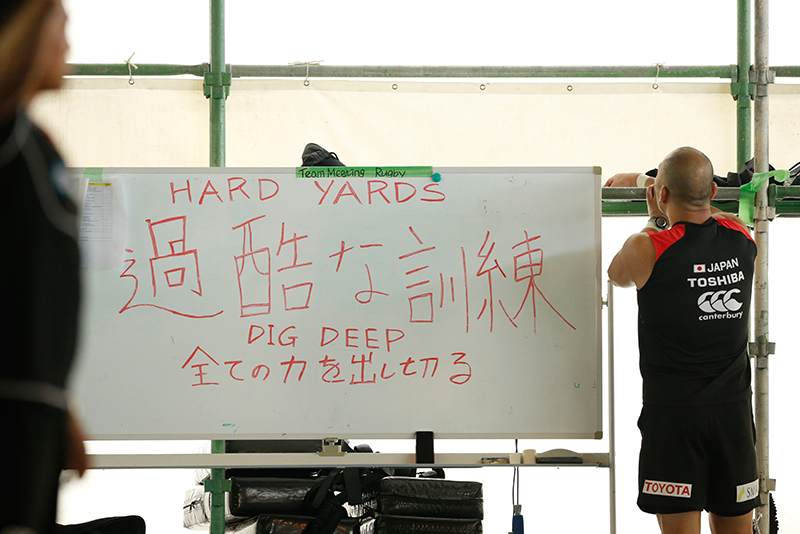 Team Meeting Rugby
HARD YARDS
過酷な訓練
DIG DEEP
全ての力を出し切る
JAPAN
TOSHIBA
CCC
canterbury
TOYOTA